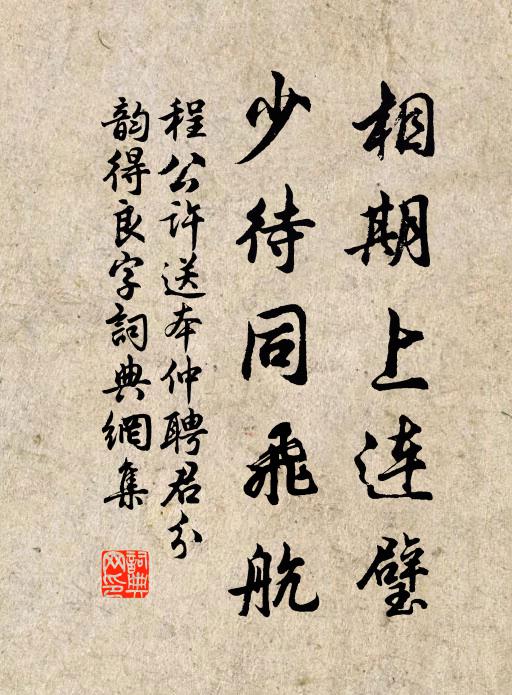 相期上連璧
少待同飛航
程公許送本仲聘君分
韵得良字詞典網集
詞典網印